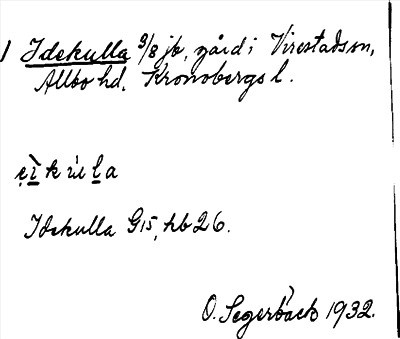 1 Idekulla 3/8 jb, gård i Virestads sn,
Allbo hd. Kronobergs l.
Idekulla G15, hb 26.
O. Segerbäck 1932.